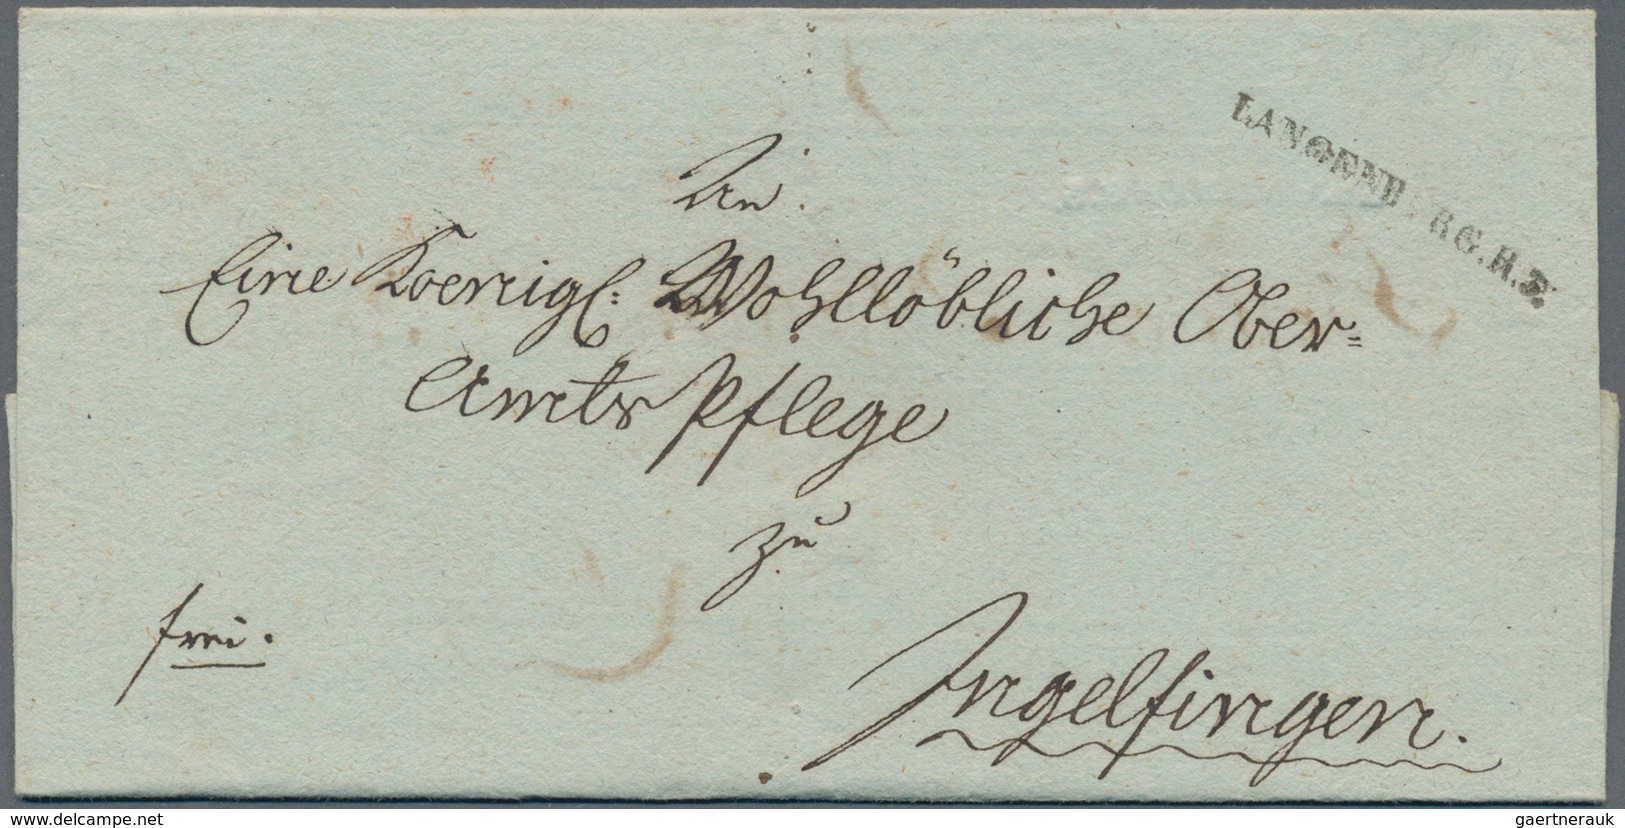 LANGENBURG.R.3.
An
Eine Koenigl: Wohllöbliche Ober=
Amts Pflege
zu
frei.
Ingelfingen.
delcampe.net
gaertnerauk